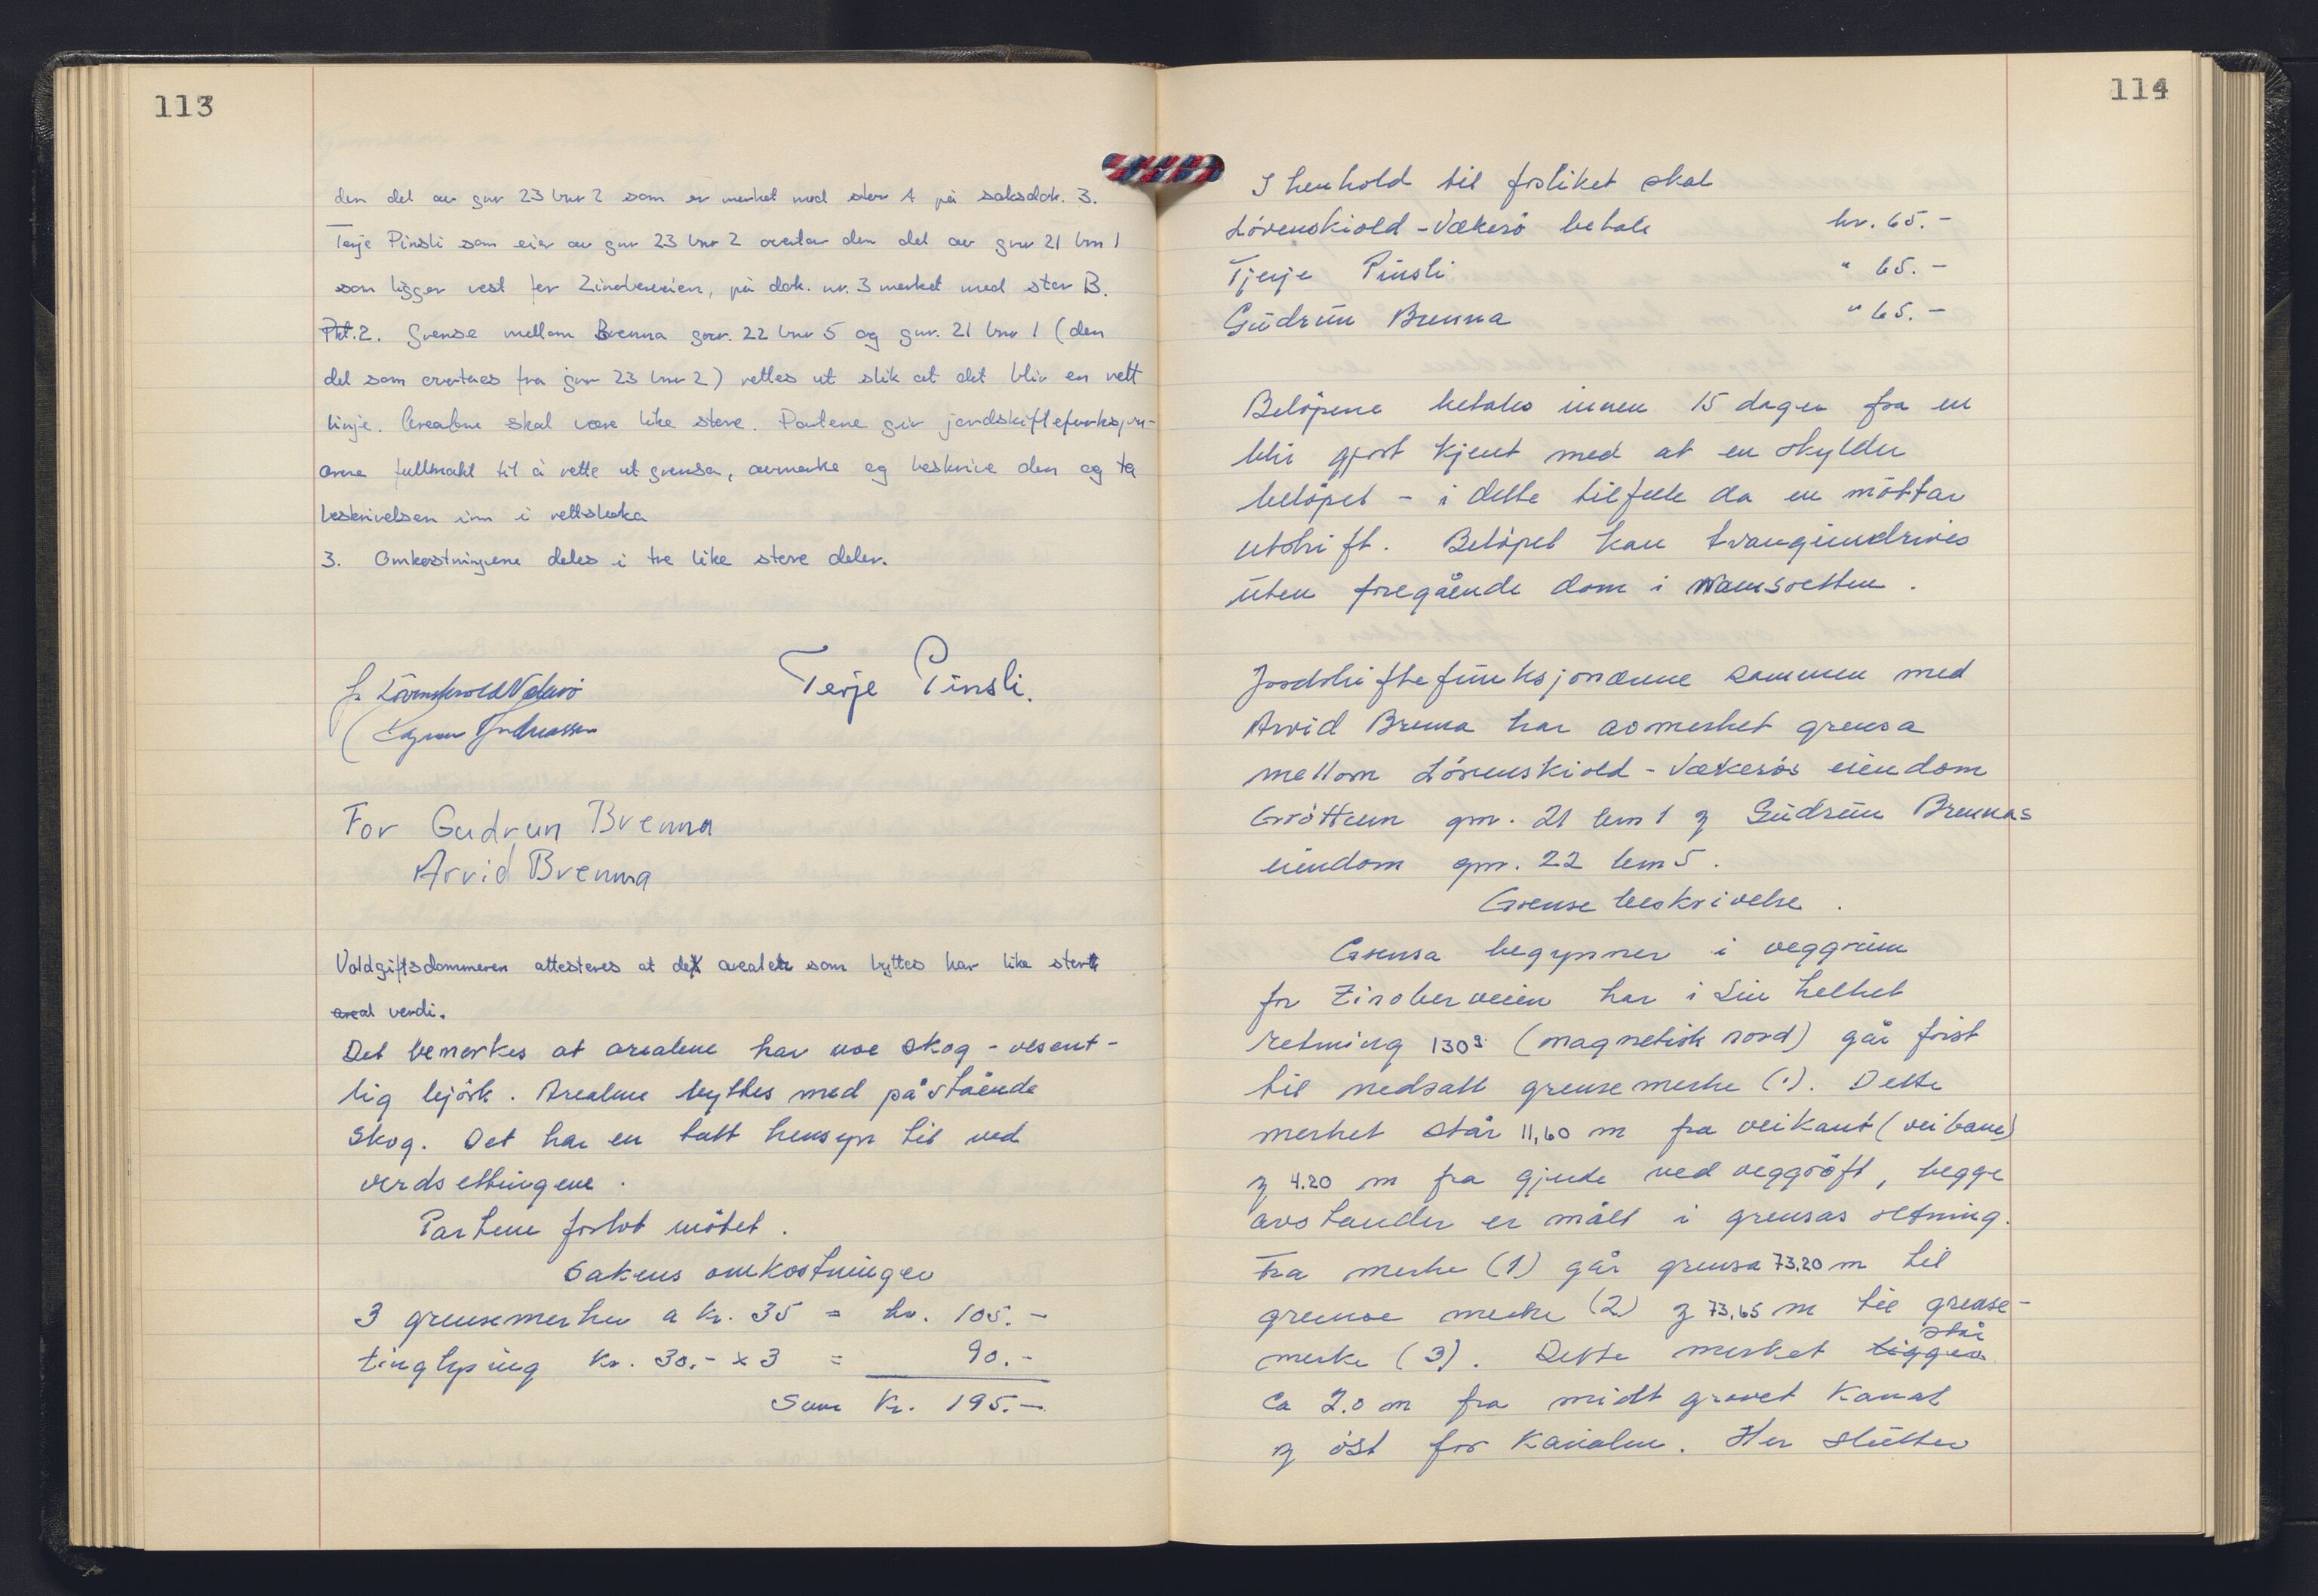 113
den del av gnr 23 bnr 2 som er merket med stor A på saksdok. 3.
Terje Pinsli som eier av gnr 23 bnr 2 overtar den del av gnr 21 bnr 1
som ligger vest for Zinoberveien, på dok. nr. 3 merket med stor B.
Pkt. 2. Grense mellom Brenna gnr. 22 bnr 5 og gnr. 21 bnr 1 (den
del som overtaes fra gnr 23 bnr 2) rettes ut slik at det blir en rett
linje. Arealene skal være like store. Partene gir jordskiftefunksjon-
ærene fullmakt til å rette ut grensa, avmerke og beskrive den og ta
beskrivelsen inn i rettsboka
3. Omkostningene deles i tre like store deler.
f. Løvenskiold Vækerø
Terje Pinsli.
For Gudrun Brenna
Arvid Brenna
Voldgiftsdommeren attesteres at de arealer som byttes har like store
areal verdi.
Det bemerkes at arealene har noe skog - vesent-
lig bjørk. Arealene byttes med påstående
skog. Det har en tatt hensyn til ved
verdsettingene.
Partene forlot møtet.
Sakens omkostninger
3 grensemerker a kr. 35 = kr. 105.-
tinglysing kr. 30.- x 3 = 90.-
Sum kr. 195.-
114
I henhold til forliket skal
Løvenskiold - Vækerø betale kr. 65.-
Tjerje Pinsli " 65.-
Gudrun Brenna " 65.-
Beløpene betales innen 15 dager fra en
blir gjort kjent med at en skylder
beløpet - i dette tilfelle da en mottar
utskrift. Beløpet kan tvanginndrives
uten foregående dom i Namsretten.
Jordskiftefunksjonærene sammen med
Arvid Brenna har avmerket grensa
mellom Løvenskiold - Vækerøs eiendom
Grøttum gnr. 21 bnr 1 og Gudrun Brennas
eiendom gnr. 22 bnr 5.
Grense beskrivelse.
Grensa begynner i veggrøun
for Zinoberveien har i sin helhet
retning 130g (magnetisk nord) går først
til nedsatt grensemerke (1). Dette
merket står 11,60 m fra veikant (veibane)
og 4.20 m fra gjerde ved veggrøft, begge
avstander er målt i grensas retning.
Fra merke (1) går grensa 73,20 m til
grense merke (2) og 73,65 m til grense-
står
merke (3). Dette merket ligger
ca 2.0 m fra midt gravet kanal
og øst for kanalen. Her slutter